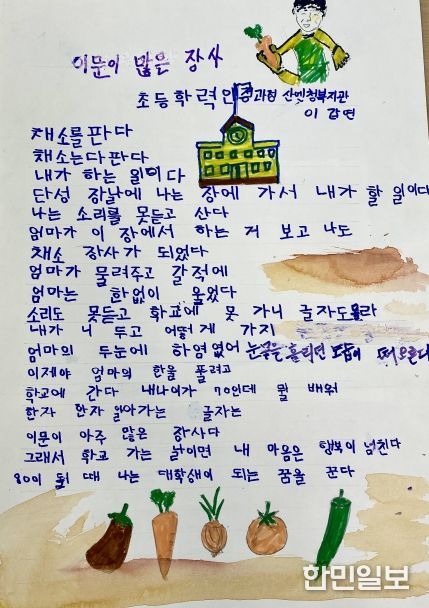 이문이 많은 장사
초등학력인정과정 산엣청복지관
이 감연
채소를판다
채소는다판다
내가 하는 일이다
단성 장날에 나는 장에 가서 내가 할 일이다
나는 소리를 못듣고 산다
엄마가 이 장에서 하는 거 보고 나도
채소 장사가 되었다
엄마가 물려주고 갈적에
엄마는 한없이 울었다
소리도 못듣고 학교에 못 가니 글자도몰라
내가 니 두고 어떻게 가지
엄마의 두눈에 하염없어 눈물을흘리던 모습이 떠오른다
이제야 엄마의 한을 풀려고
학교에 간다 내나이가 70인데 뭘 배워
한자 한자 알아가는 글자는
이문이 아주 많은 장사다
그래서 학교 가는 날이면 내 마음은 행복이 넘친다
80이 될 때 나는 대학생이 되는 꿈을 꾼다
한민일보